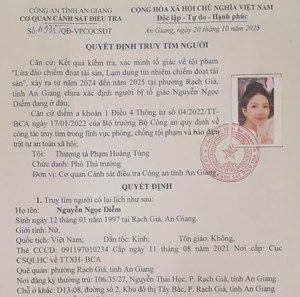 CÔNG AN TỈNH AN GIANG
CƠ QUAN CẢNH SÁT ĐIỀU TRA
CỘNG HÒA XÃ HỘI CHỦ NGHĨA VIỆT NAM
Độc lập - Tự do - Hạnh phúc
/QĐ-VPCQCSĐT
An Giang, ngày 20 tháng 10 năm 2025
QUYẾT ĐỊNH TRUY TÌM NGƯỜI
Căn cứ: Kết quả kiểm tra, xác minh tố giác về tội phạm
"Lừa đảo chiếm đoạt tài sản, Lạm dụng tín nhiệm chiếm đoạt tài
sản", xảy ra từ năm 2024 đến năm 2025 tại phường Rạch Giá,
An Giang chưa xác định người bị tố giác Nguyễn Ngọc
Diễm đang ở đâu;
Căn cứ điểm a khoản 1 Điều 4 Thông tư số 04/2022/TT-
BCA ngày 17/01/2022 của Bộ trưởng Bộ Công an quy định về
công tác truy tìm trong lĩnh vực phòng, chống tội phạm và bảo đảm
trật tự an toàn xã hội;
Tôi: Thượng tá Phạm Hoàng Tùng
Chức danh: Phó Thủ trưởng
Đơn vị: Cơ quan Cảnh sát điều tra Công an tỉnh An Giang.
QUYẾT ĐỊNH
1. Truy tìm người có lai lịch như sau:
Họ tên: Nguyễn Ngọc Diễm
Sinh ngày 12 tháng 01 năm 1997 tại Rạch Giá, An Giang.
Giới tính: Nữ,
Quốc tịch: Việt Nam; Dân tộc: Kinh; Tôn giáo: Không,
Thẻ CCCD: 091197010234 Cấp ngày 11 tháng 08 năm 2021 Nơi cấp: Cục
CSQLHC về TTXH- BCA
Quê quán: phường Rạch Giá, tỉnh An Giang
Nơi đăng ký thường trú: 106/35/27, Nguyễn Thái Học, P. Rạch Giá, tỉnh An Giang.
Chỗ ở: D13-08, đường số 2, Khu đô thị Tây Bắc, P. Rạch Giá, tỉnh An Giang.